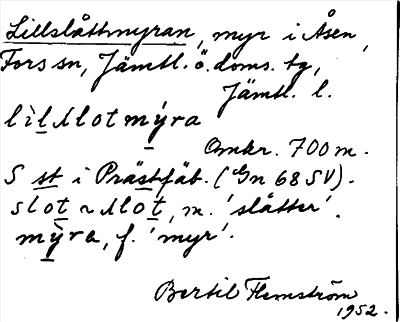 Lillslåttmyran, myr i Åsen,
Fors sn, Jämtl. ö. doms. tg,
Jämtl. l.
lìl slot mýra
Omkr. 700 m.
S st i Prästfäb. (Gn 68 SV).
slot ~ slot, m. 'slåtter'.
mỳra, f. 'myr'.
Bertil Flemström
1952.